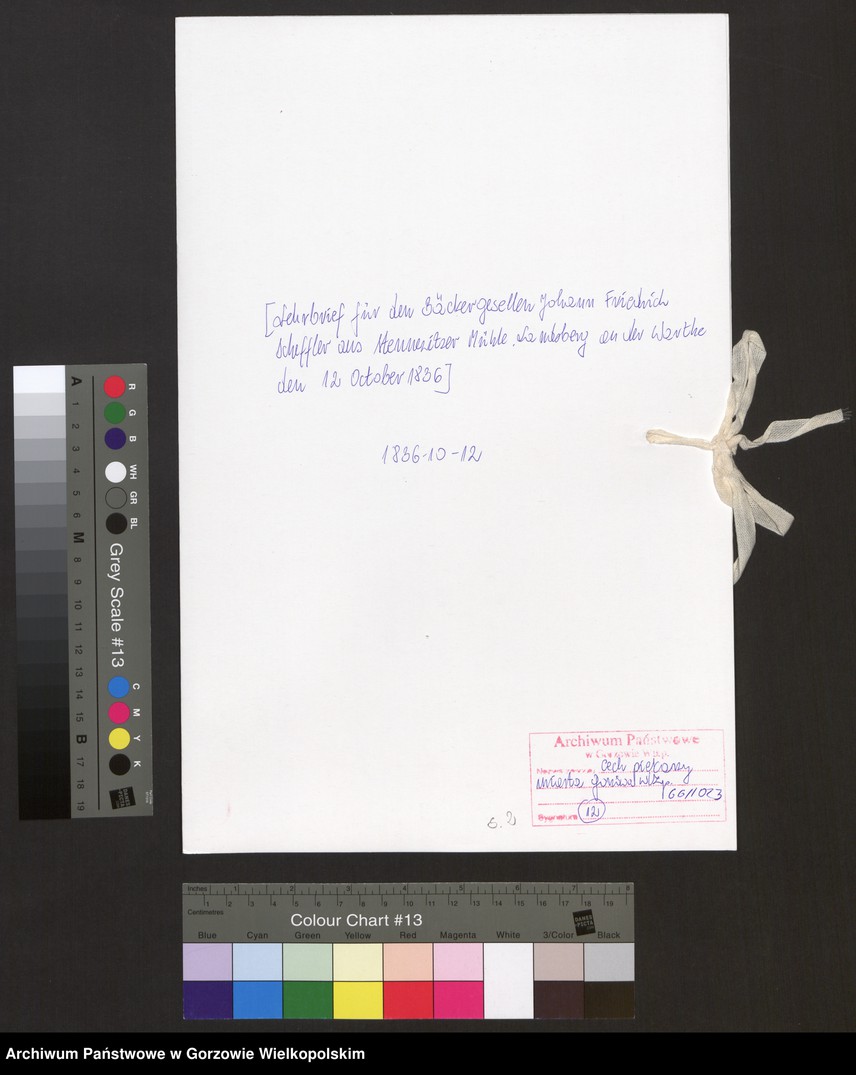 [Lehrbrief für den Bäckergesellen Johann Friedrich
Scheffler aus Hennesitzer Mühle. Landsberg an der Warthe
den 12 October 1836]
1836-10-12
Archiwum Państwowe
w Gorzowie Wlkp.
Cech piekarzy
miasta Gorzowa Wlkp.
66/1023
Sygnatura 12
A 1 2 3 4 5 6 M 8 9 10 11 12 13 14 15 B 17 18 19
R G B WH GR BL
Grey Scale #13
C M Y K
DANES PICTA
Inches 1 2 3 4 5 6 7 8
Centimetres 1 2 3 4 5 6 7 8 9 10 11 12 13 14 15 16 17 18 19
Colour Chart #13
DANES PICTA
Blue Cyan Green Yellow Red Magenta White 3/Color Black
Archiwum Państwowe w Gorzowie Wielkopolskim